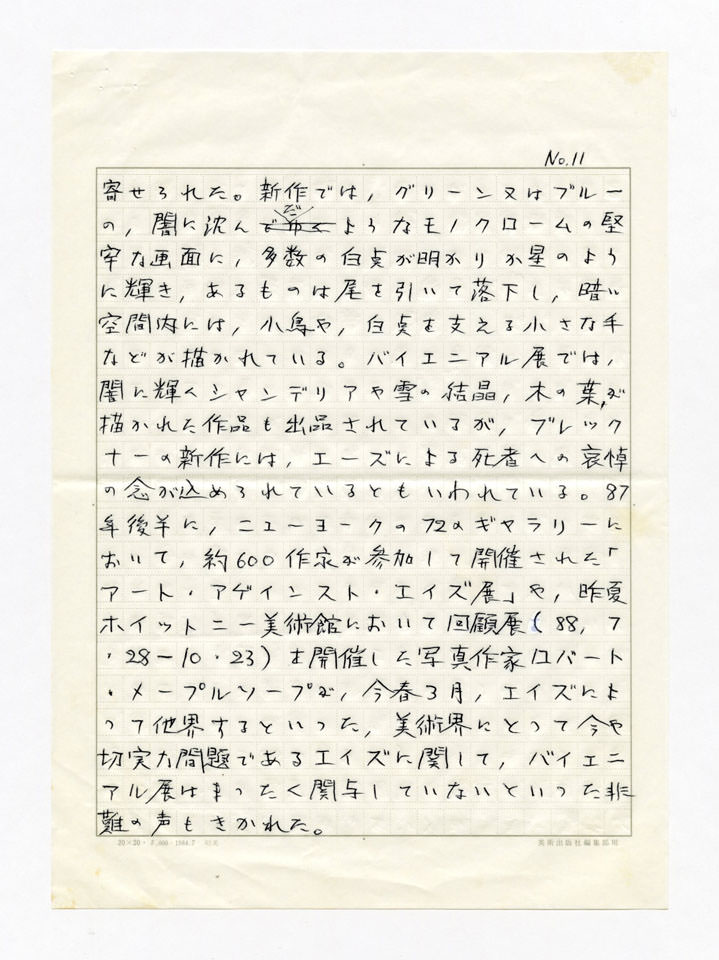 No.11
寄せられた。新作では，グリーン又はブルー
の，闇に沈んだようなモノクロームの堅
牢な画面に，多数の白点が明かりか星のよう
に輝き，あるものは尾を引いて落下し，暗い
空間内には，小鳥や，白点を支える小さな手
などが描かれている。バイエニアル展では，
闇に輝くシャンデリアや雪の結晶，木の葉が
描かれた作品も出品されているが，ブレック
ナーの新作には，エーズによる死者への哀悼
の念が込められているともいわれている。87
年後半に，ニューヨークの72のギャラリーに
おいて，約600作家が参加して開催された「
アート・アゲインスト・エイズ展」や，昨夏
ホイットニー美術館において回顧展（88，7
・28－10・23）を開催した写真作家ロバート
・メープルソープが，今春3月，エイズによ
って他界するといった，美術界にとって今や
切実な問題であるエイズに関して，バイエニ
アル展はまったく関与していないといった非
難の声もきかれた。
20×20・ 1984.7
美術出版社編集部用